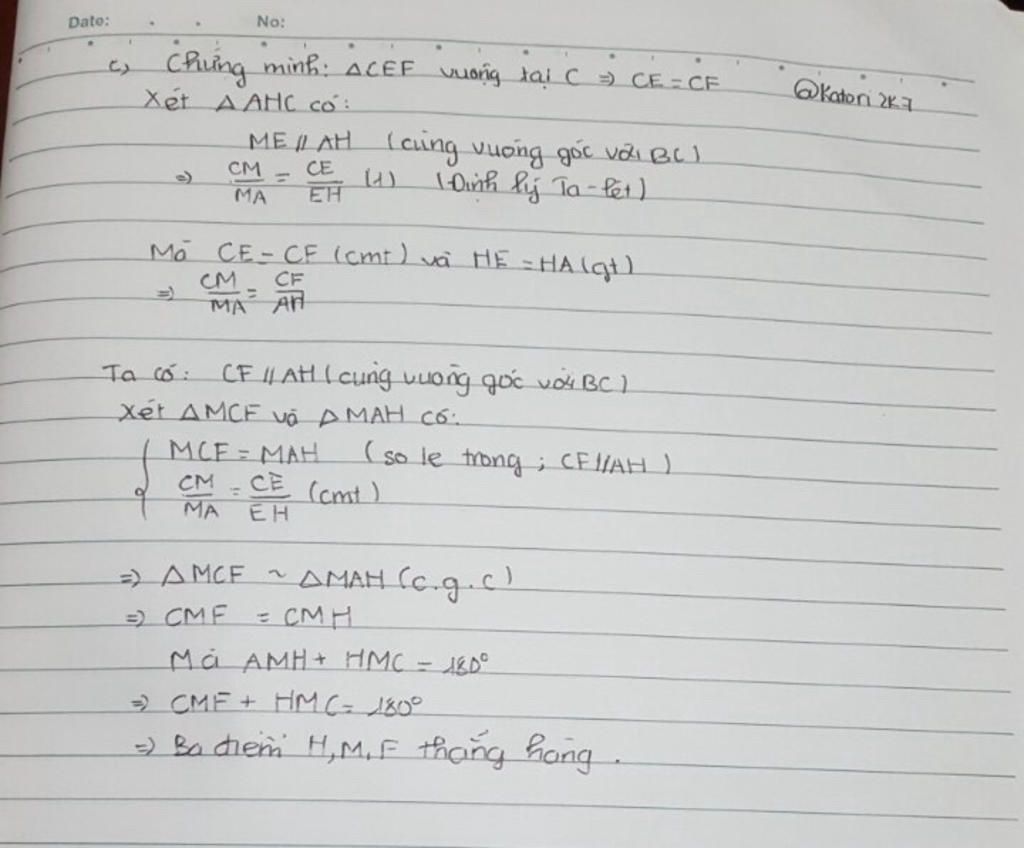 Date: . . No:
c, Chứng minh: ΔCEF vuông tại C ⇒ CE = CF @Katori2K7
Xét ΔAHC có:
ME // AH (cùng vuông góc với BC)
⇒ CM/MA = CE/EH (1) (Định lý Ta-lét)
Mà CE = CF (cmt) và HE = HA (gt)
⇒ CM/MA = CF/AH
Ta có: CF // AH (cùng vuông góc với BC)
Xét ΔMCF và ΔMAH có:
MCF = MAH (so le trong ; CF // AH)
CM/MA = CE/EH (cmt)
⇒ ΔMCF ~ ΔMAH (c.g.c)
⇒ CMF = CMH
Mà AMH + HMC = 180°
⇒ CMF + HMC = 180°
⇒ Ba điểm H, M, F thẳng hàng.